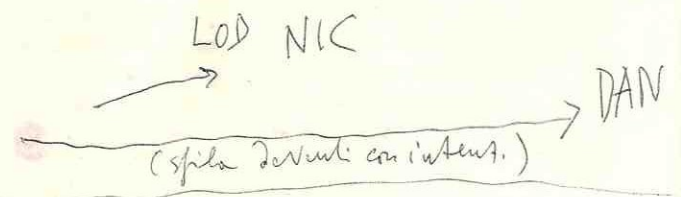 LOD NIC
DAN
(sfila davanti con intenz.)